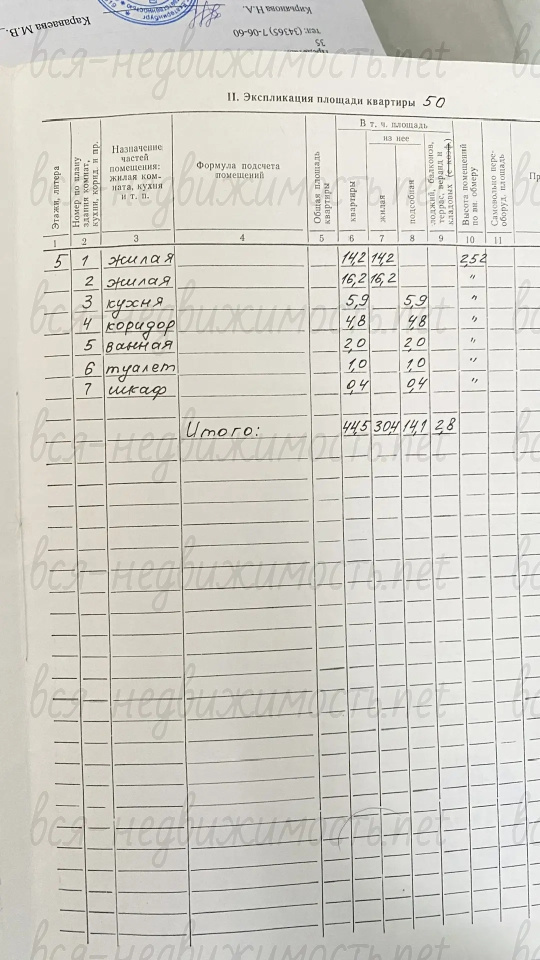 Караваева М.В.
Кирьянова Н.А.
тел: (34365) 7-06-60
35
вся-недвижимость.net
II. Экспликация площади квартиры 50
Этажи, литера
Номер по плану здания комнат, кухни, корид. и пр.
Назначение
частей
помещения:
жилая ком-
ната, кухня
и т. п.
Формула подсчета
помещений
Общая площадь квартиры
В т. ч. площадь
квартиры
из нее
жилая
подсобная
лоджий, балконов, террас, веранд и кладовых (с коэф.)
Высота помещений по вн. обмеру
Самовольно пере-оборуд. площадь
Пр
1 2 3 4 5 6 7 8 9 10 11
5 1 жилая 14,2 14,2 2,52
2 жилая 16,2 16,2 "
3 кухня 5,9 5,9 "
4 коридор 4,8 4,8 "
5 ванная 2,0 2,0 "
6 туалет 1,0 1,0 "
7 шкаф 0,4 0,4 "
Итого: 44,5 30,4 14,1 2,8
вся-недвижимость.net
вся-недвижимость.net
вся-недвижимость.net
вся-недвижимость.net
вся-недвижимость.net
вся-недвижимость.net